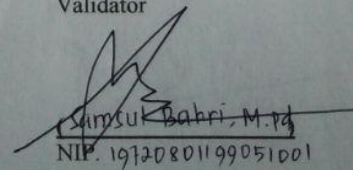 Validator
Samsul Bahri, M.Pd
NIP. 19720801199051001